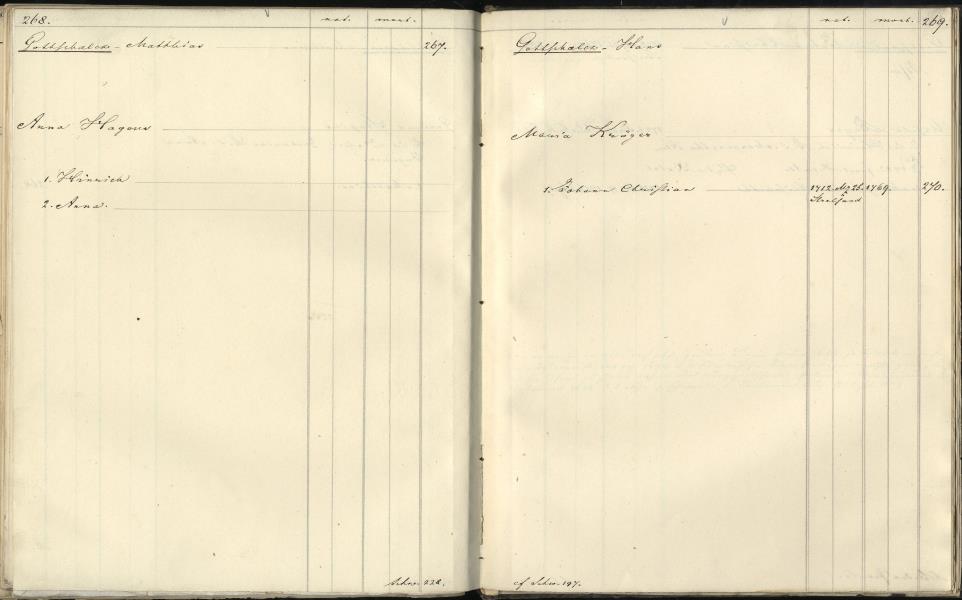 268.
nat. mort.
Gottschalck - Matthias 267.
Anna Hagens
1. Hinrich
2. Anna.
Schw. 222.
nat. mort. 269.
Gottschalck - Hans
Maria Kröger
1. Johann Christian 1712. Mz 26. 1769. 270.
Stralsund
cf. Schw. 197.